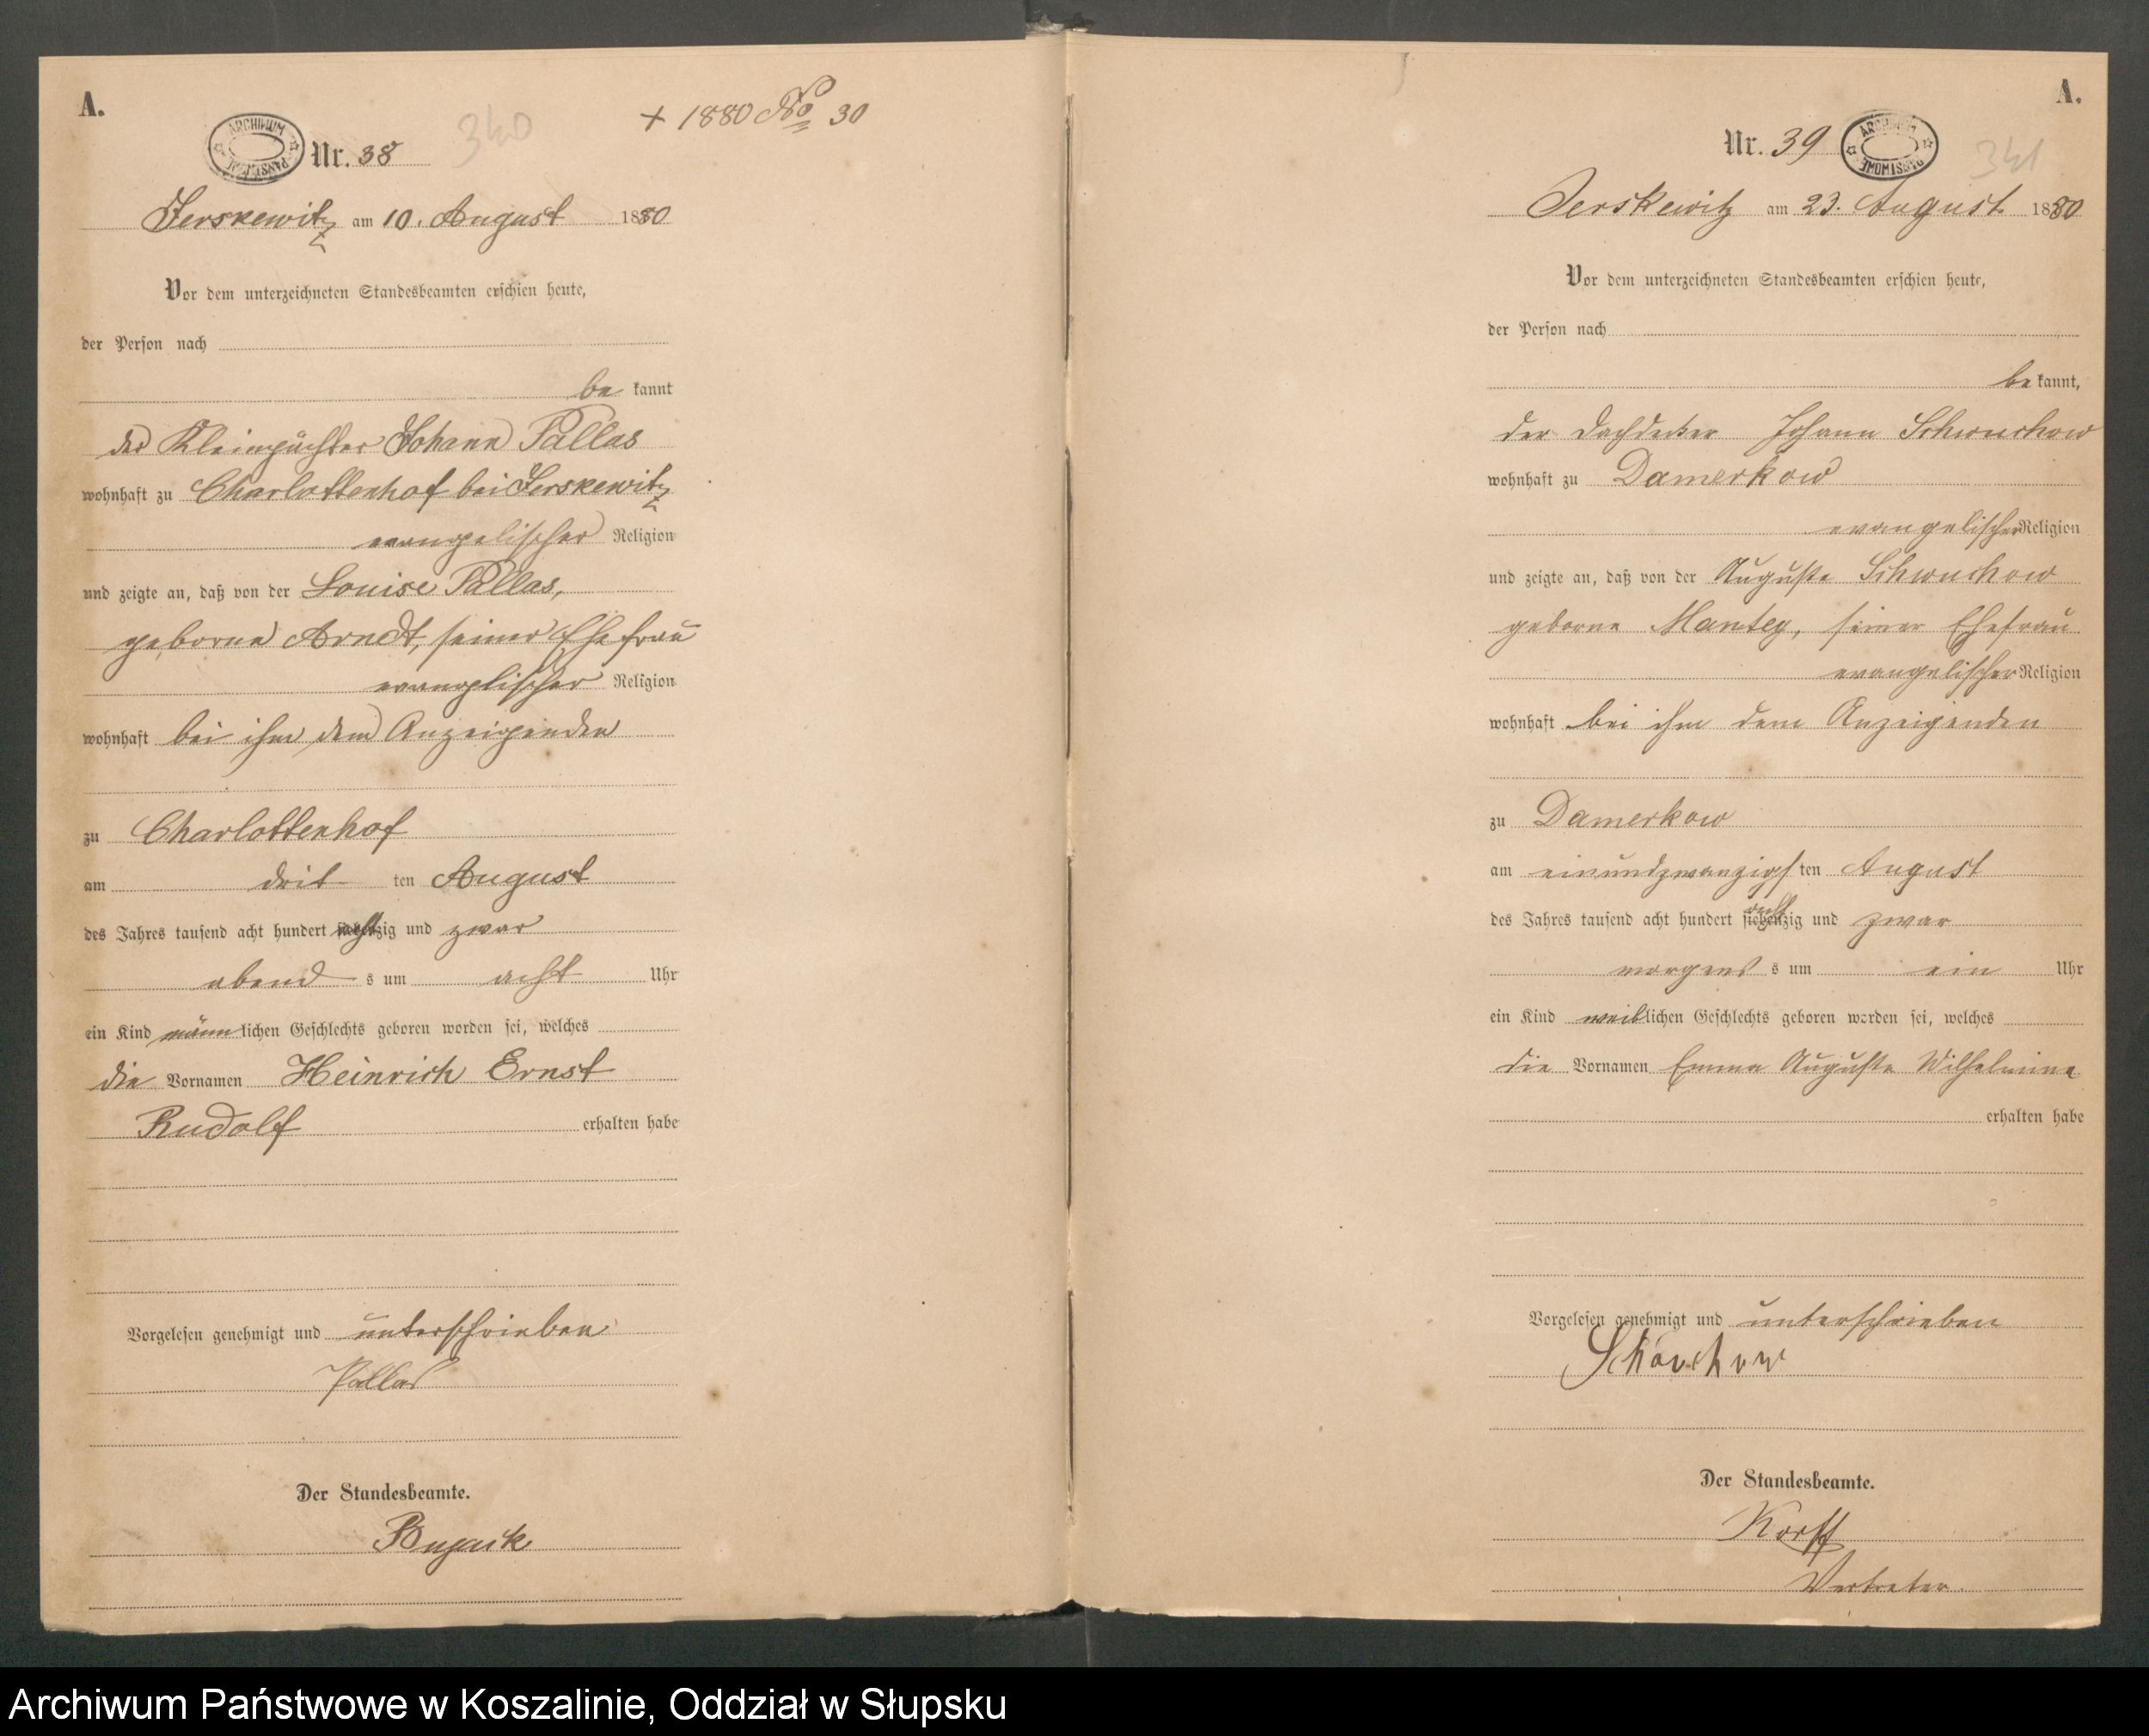 A.
ARCHIWUM PAŃSTWOWE
Nr. 38
340
+ 1880 No 30
Jerskewitz am 10. August 1880
Vor dem unterzeichneten Standesbeamten erschien heute,
der Person nach
be kannt
der Kleinpächter Johann Pallas
wohnhaft zu Charlottenhof bei Jerskewitz
evangelischer Religion
und zeigte an, daß von der Louise Pallas,
geborne Arndt, seiner Ehefrau
evangelischer Religion
wohnhaft bei ihm dem Anzeigenden
zu Charlottenhof
am drit ten August
des Jahres tausend acht hundert achtzig und zwar
abend s um acht Uhr
ein Kind männlichen Geschlechts geboren worden sei, welches
die Vornamen Heinrich Ernst
Rudolf erhalten habe
Vorgelesen genehmigt und unterschrieben
Pallas
Der Standesbeamte.
A.
Nr. 39
ARCHIWUM PAŃSTWOWE
341
Jerskewitz am 23. August 1880
Vor dem unterzeichneten Standesbeamten erschien heute,
der Person nach
be kannt,
der Dachdecker Johann Schwuchow
wohnhaft zu Damerkow
evangelischer Religion
und zeigte an, daß von der Auguste Schwuchow
geborne Mantey, seiner Ehefrau
evangelischer Religion
wohnhaft bei ihm dem Anzeigenden
zu Damerkow
am einundzwanzigsten August
des Jahres tausend acht hundert siebenzig acht und zwar
morgens s um ein Uhr
ein Kind weiblichen Geschlechts geboren worden sei, welches
die Vornamen Emma Auguste Wilhelmine
erhalten habe
Vorgelesen genehmigt und unterschrieben
Der Standesbeamte.
Korff
Vertreter.
Archiwum Państwowe w Koszalinie, Oddział w Słupsku